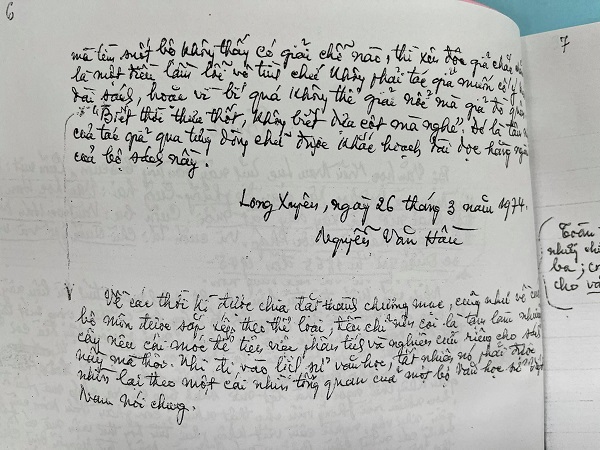 6
mà tìm suốt bộ không thấy có giải chỗ nào, thì xin độc giả chắc
là một điều lầm lỗi vô tình chứ không phải tác giả muốn
dài sách, hoặc vì bí quá không thể giải nổi mà giả đò
"Biết thời thưa thốt, không biết dựa cột mà nghe". Đó là
của tác giả qua từng dòng chữ được khắc hoạch dài dọc hằng
của bộ sách nầy.
Long Xuyên, ngày 26 tháng 3 năm 1974.
Nguyễn Văn Hầu
Về các thời kì được chia đặt thành chương mục, cũng như về
bộ môn được sắp xếp theo thể loại, tiêu chí nên coi là tạm
cây nêu cái mốc để tiện việc phân tích và nghiên cứu riêng cho sách
nầy mà thôi. Khi đi vào lịch sử văn học, tất nhiên nó phải được
nhìn lại theo một cái nhìn tổng quan của một bộ văn học sử Việt
Nam nói chung.
7
Toàn
những
ba;
cho